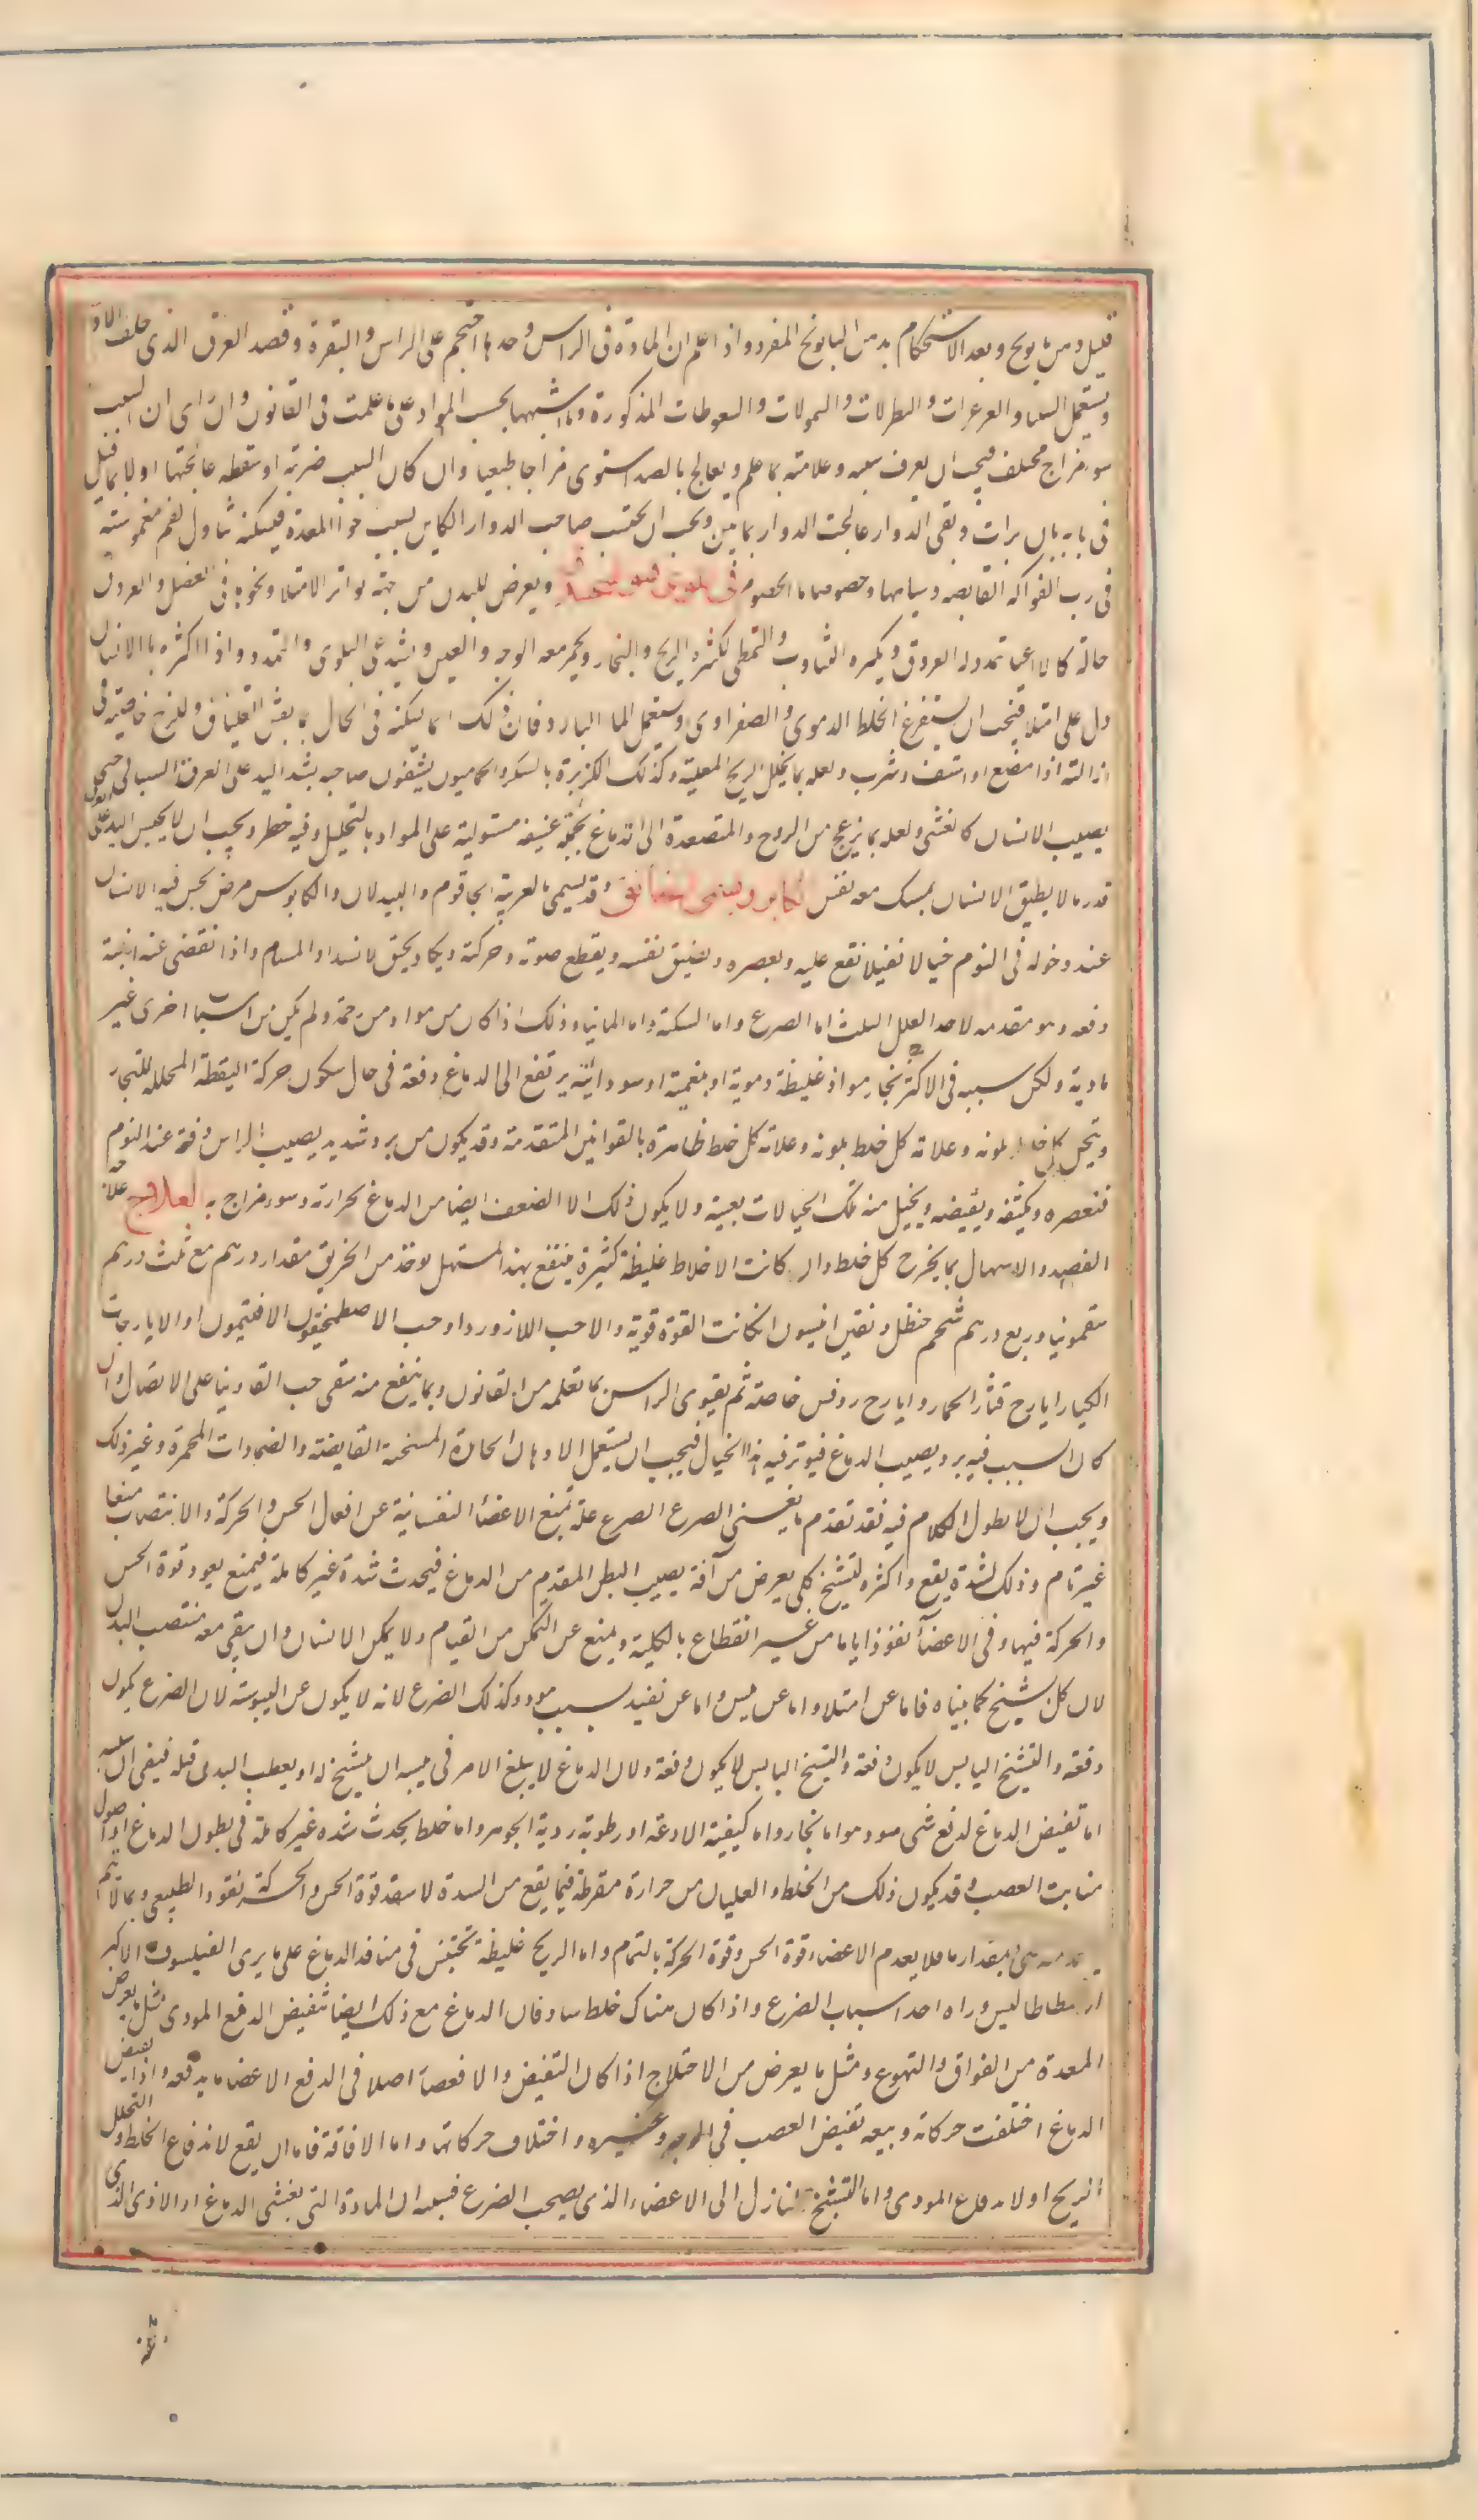 قليل ومن بابونج وبعد الاستحكام بدمن البابونج المفرد واذا علم ان المادة فى الراس وحدها احتجم على الراس والنقرة وفصد العرق الذى خلف الاذن
ويستعمل والغرغرات والنطولات والشمومات والسعوطات المذكورة وما اشبهها بحسب المواد على ما علمت فى القانون وان راى ان السبب
سوء مزاج مختلف فيجب ان يعرف سببه وعلامته بما علم ويعالج بالضد استوى مزاجا طبيعيا وان كان السبب ضربة او سقطة عالجتها اولا بما قيل
فى بابه بان برات وبقى الدوار عالجت الدوار بما بين ويجب ان يجتنب صاحب الدوار الكاين بسبب المعدة فيمكنه تناول لقم مغموسة
فى رب الفواكه القابضة ومياهها وخصوصا ماء الحصرم فى ويعرض للبدن من جهة تواتر الامتلاء ونحوه فى العضل والعروق
حالة كالاعياء تمدد له العروق ويكثره التثاوب والتمطى لكثرة الريح والبخار ويحمر معه الوجه والعين ويشتد فى التلوى والتمدد واذا اكثره بالانسان
دل على امتلاء فيجب ان يستفرغ الخلط الدموى والصفراوى ويستعمل الماء البارد فان ذلك انما يسكنه فى الحال بما يفثا الغليان وللخاصية فى
ازالته اذا مضغ او استف وشرب ولعله بما يحلل الريح المغلية وكذلك الكزبرة بالسكر والحماميون يشفون صاحبه بشد اليد على العرق السباتى حتى
يصيب الانسان كالغشى ولعله بما يزعج من الروح والمتصعدة الى الدماغ بحمية عنيفة مستولية على المواد بالتحليل وفيه خطر ويجب ان لا يحبس اليد على
قدر ما لا يطيق الانسان يمسك معه نفس الكابوس ويسمى الخانق وقد يسمى بالعربية الجاثوم والنيدلان والكابوس مرض يحس فيه الانسان
عند دخوله فى النوم خيالا ثقيلا تقع عليه ويعصره ويضيق نفسه ويقطع صوته وحركته ويكاد يختنق لانسداد المسام واذا انقضى عنه انتبه
دفعة وهو مقدمه لاحد العلل الثلث اما الصرع واما السكتة واما المانيا وذلك اذا كان من مواد مزدحمة ولم يكن من اسباب اخرى غير
مادية ولكن سببه فى الاكثر بخار مواد غليظة دموية او بلغمية او سوداية يرتفع الى الدماغ دفعة فى حال سكون حركة اليقظة المحللة للبخار
ويتخيل كل خلط بلونه وعلامة كل خلط بلونه وعلامة كل خلط ظاهرة بالقوانين المتقدمة وقد يكون من برد شديد يصيب الراس دفعة عند النوم
فتعصره ويكثفه ويقبضه ويتخيل منه تلك الخيالات بعينه ولا يكون ذلك الا لضعف ايضا من الدماغ لحرارته وسوء مزاج به العلاج علاجه
الفصد والاسهال بما يخرج كل خلط وان كانت الاخلاط غليظة كثيرة ينتفع بهذا المسهل يوخذ من الخربق مقدار درهم مع ثلث درهم
سقمونيا وربع درهم شحم حنظل ونقين انيسون ان كانت القوة قوية والا حب اللازورد او حب الاصطمخيقون الافتيمون او الايارجات
الكبار ايارج قثاء الحمار وايارج روفس خاصة ثم يقوى الراس بما تعلمه من القانون ومما ينفع منه سقى حب الفاونيا على الاتصال وان
كان السبب فيه برد يصيب الدماغ فيوثر فيه هذا الخيال فيجب ان يستعمل الادهان الحارة المسخنة القابضة والضمادات المحمرة وغير ذلك
ويجب ان لا يطول الكلام فيه فقد تقدم ما يغنى الصرع الصرع علة تمنع الاعضا النفسانية عن افعال الحس والحركة والانتصاب منعا
غير تام وذلك لسدة يقع واكثره لتشنج كلى يعرض من آفة يصيب البطن المقدم من الدماغ فيحدث سدة غير كاملة فيمنع نفوذ قوة الحس
والحركة فيها وفى الاعضآ نفوذا ياما من غير انقطاع بالكلية ويمنع عن التمكن من القيام ولا يمكن الانسان ان يبقى معه منتصب البدن
لان كل تشنج كما بيناه فاما عن امتلاء واما عن يبس واما عن تقبض بسبب موذ وكذلك الصرع لانه لا يكون عن اليبوسة لان الصرع يكون
دفعة والتشنج اليابس لا يكون دفعة والتشنج اليابس لا يكون دفعة ولان الدماغ لا يبلغ الامر فى يبسه ان يتشنج له او يعطب البدن قبله فبقى ان سببه
اما تقبض الدماغ لدفع شى موذ هو اما بخار واما كيفية لاذعة او رطوبة ردية الجوهر واما خلط يحدث سدة غير كاملة فى بطون الدماغ او اصول
منابت العصب وقد يكون ذلك من الخلط والغليان من حرارة مفرطة فيما يقع من السدة لا ينفذ قوة الحس والحركة نفوذ الطبيعى وبما لا يتم
بمقدار ما فلا يعدم الاعضاء قوة الحس وقوة الحركة بالتمام واما الريح غليظة تحتبس فى منافذ الدماغ على ما يرى الفيلسوف الاكبر
ارسطاطاليس وراه احد اسباب الصرع واذا كان هناك خلط ساد فان الدماغ مع ذلك ايضا يتقبض لدفع الموذى مثل ما يعرض
المعدة من الفواق والتهوع ومثل ما يعرض من الاختلاج اذا كان التقبض والانعصار اصلا فى الدفع الاعضا ما يدفعه واذا تقبض
الدماغ اختلفت حركاته وتبعه تقبض العصب فى الوجه وغيره واختلاف حركاتها واما الافاقة فاما ان يقع لاندفاع الخلط والتحلل
الريح او لاندفاع الموذى واما التشنج النازل الى الاعضاء الذى يصحب الصرع فسببه ان المادة التى يغشى الدماغ او الاذى الذى